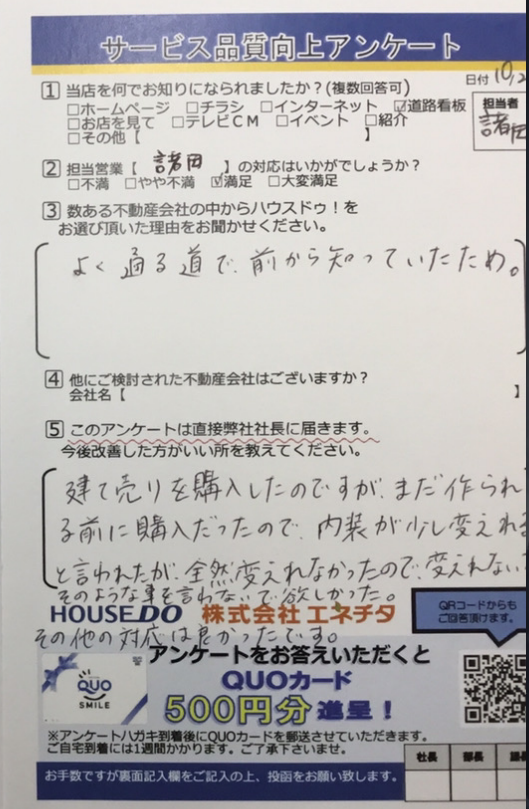 サービス品質向上アンケート
日付 10,2
1 当店を何でお知りになられましたか?(複数回答可)
□ホームページ □チラシ □インターネット ☑道路看板
□お店を見て □テレビCM □イベント □紹介
□その他【 】
担当者
諸田
2 担当営業【 諸田 】の対応はいかがでしょうか?
□不満 □やや不満 ☑満足 □大変満足
3 数ある不動産会社の中からハウスドゥ!を
お選び頂いた理由をお聞かせください。
よく通る道で、前から知っていたため。
4 他にご検討された不動産会社はございますか?
会社名【 】
5 このアンケートは直接弊社社長に届きます。
今後改善した方がいい所を教えてください。
建て売りを購入したのですが、まだ作られ
る前に購入だったので、内装が少し変えれる
と言われたが、全然変えれなかったので、変えれない
そのような事を言わないで欲しかった。
HOUSEDO 株式会社 エネチタ
その他の対応は良かったです。
QRコードからも
ご回答頂けます。
アンケートをお答えいただくと
QUOカード
500円分 進呈!
QUO
SMILE
※アンケートハガキ到着後にQUOカードを郵送させていただきます。
ご自宅到着には1週間かかります。ご了承下さいませ。
お手数ですが裏面記入欄をご記入の上、投函をお願い致します。
社長 部長 課長